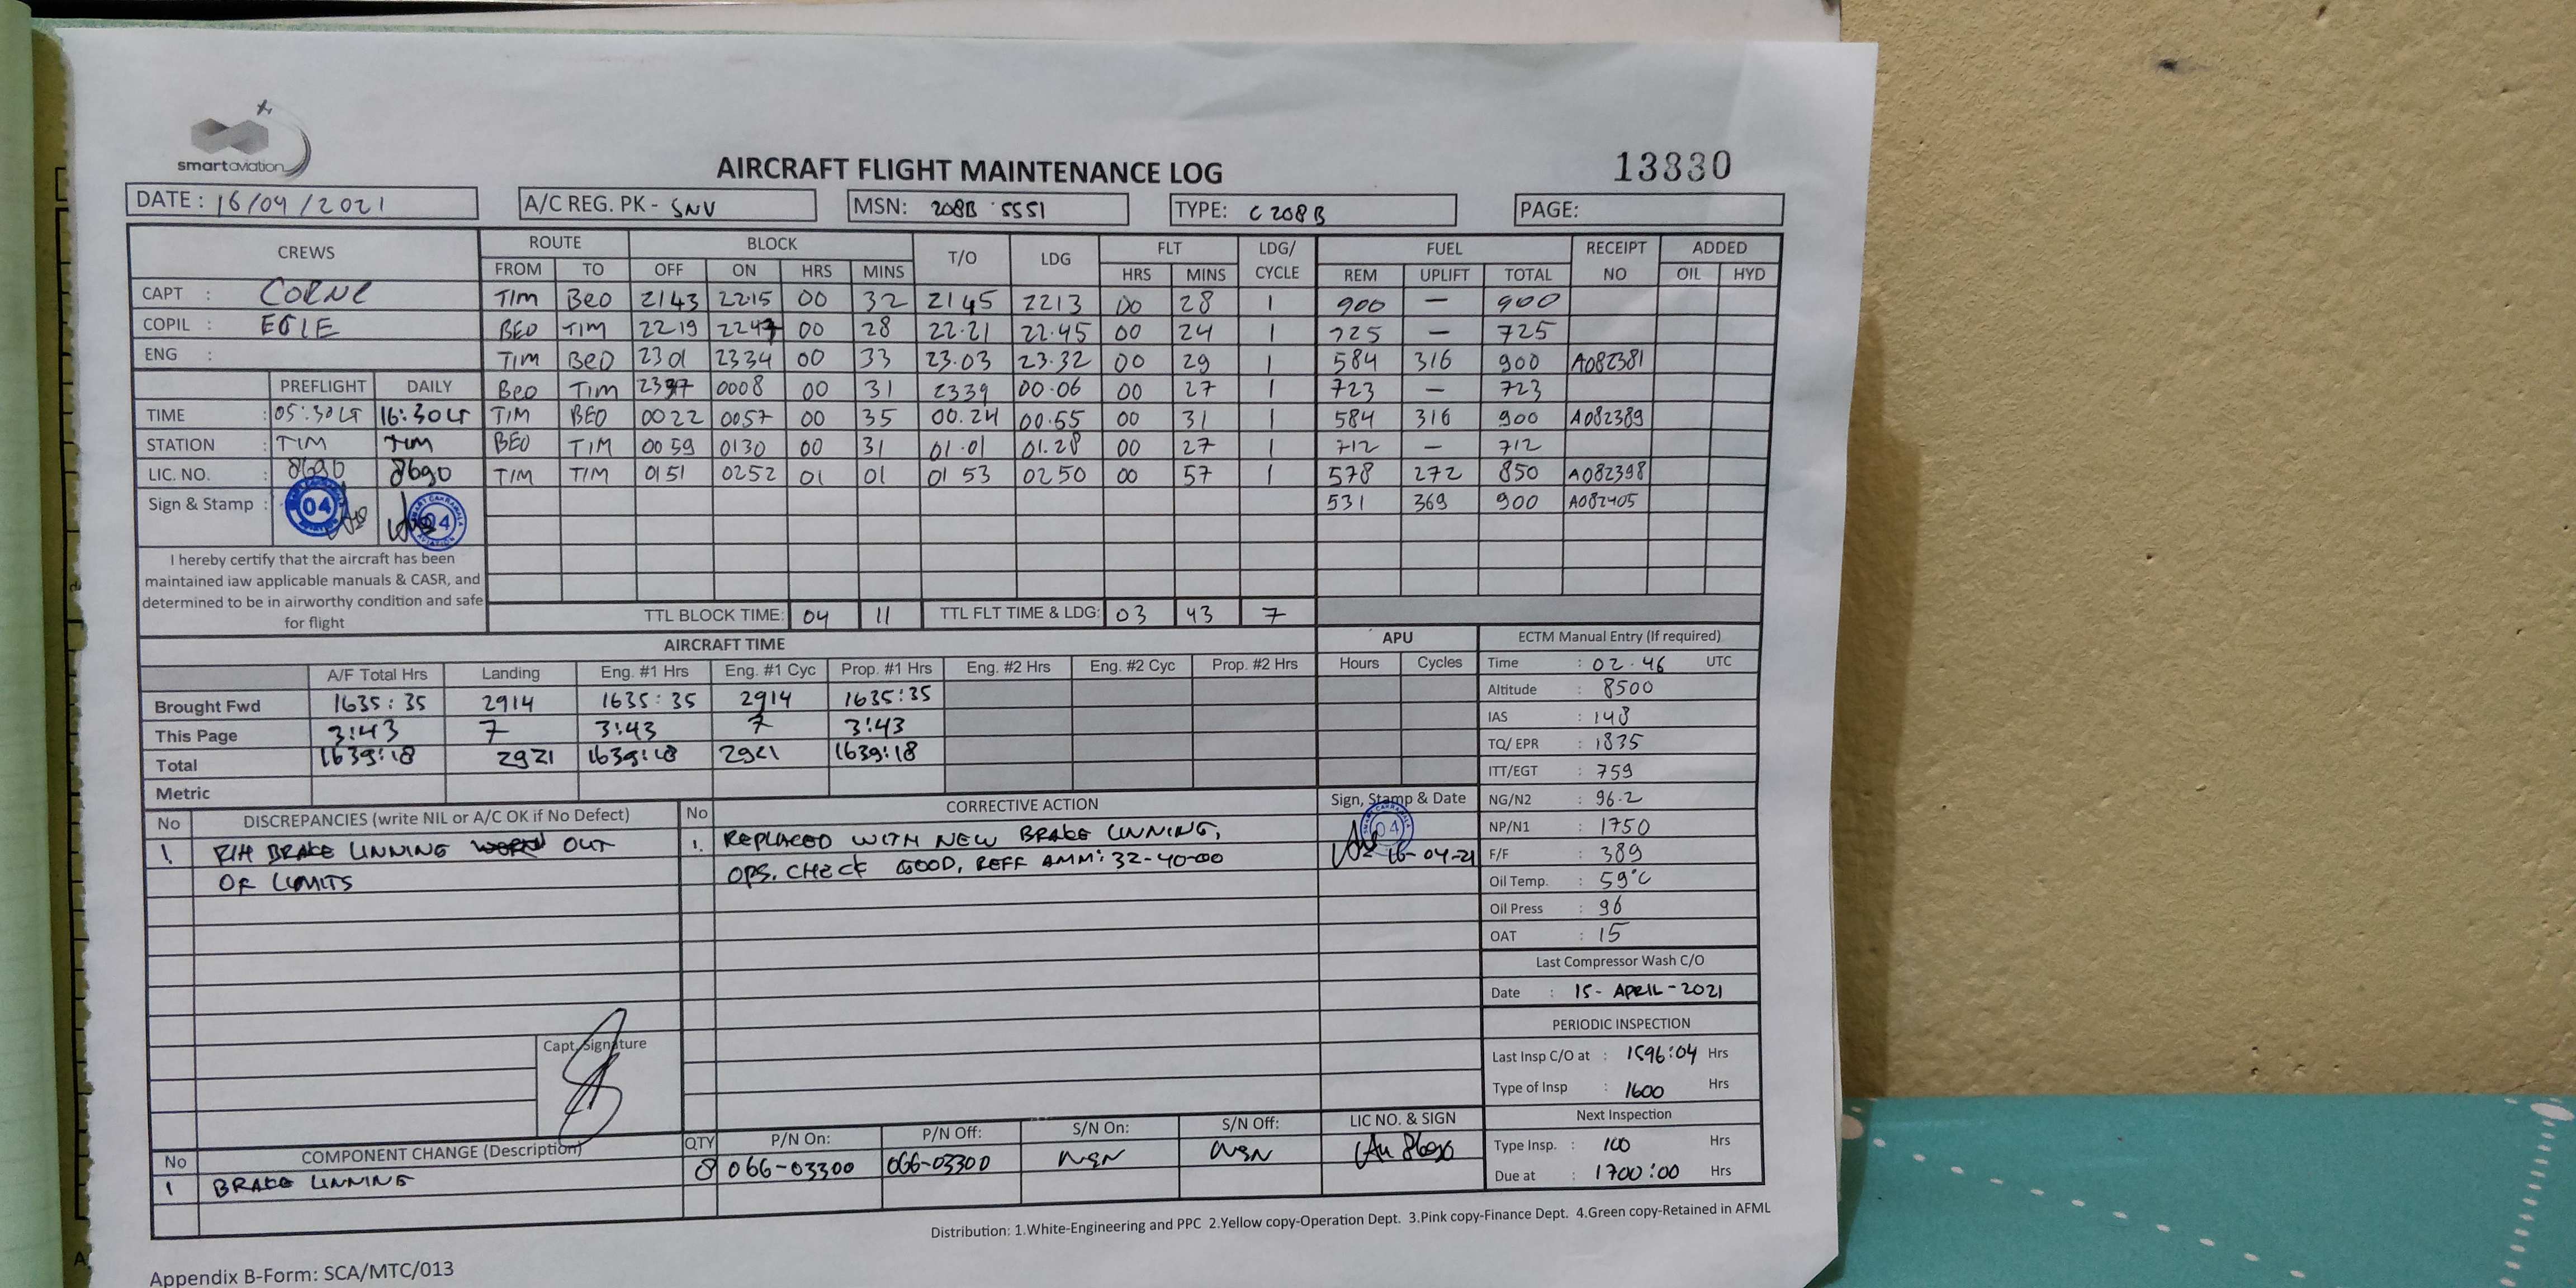 smartaviation
AIRCRAFT FLIGHT MAINTENANCE LOG
13830
DATE : 16/04/2021
A/C REG. PK - SNV
MSN: 208B 5551
TYPE: C 208 B
PAGE:
CREWS ROUTE BLOCK T/O LDG FLT LDG/ CYCLE FUEL RECEIPT NO ADDED
FROM TO OFF ON HRS MINS HRS MINS REM UPLIFT TOTAL OIL HYD
CAPT : CORNE TIM BEO 2143 2215 00 32 2145 2213 00 28 1 900 — 900
COPIL : EGIE BEO TIM 2219 2247 00 28 22.21 22.45 00 24 1 725 — 725
ENG : TIM BEO 2301 2334 00 33 23.03 23.32 00 29 1 584 316 900 A082381
PREFLIGHT DAILY BEO TIM 2337 0008 00 31 2339 00.06 00 27 1 723 — 723
TIME : 05:30LT 16:30LT TIM BEO 0022 0057 00 35 00.24 00.55 00 31 1 584 316 900 A082389
STATION : TIM TIM BEO TIM 0059 0130 00 31 01.01 01.28 00 27 1 712 — 712
LIC. NO. : 8690 8690 TIM TIM 0151 0252 01 01 01 53 02 50 00 57 1 578 272 850 A082398
Sign & Stamp : 04 04 531 369 900 A082405
I hereby certify that the aircraft has been
maintained iaw applicable manuals & CASR, and
determined to be in airworthy condition and safe
for flight
TTL BLOCK TIME: 04 11 TTL FLT TIME & LDG: 03 43 7
AIRCRAFT TIME APU
A/F Total Hrs Landing Eng. #1 Hrs Eng. #1 Cyc Prop. #1 Hrs Eng. #2 Hrs Eng. #2 Cyc Prop. #2 Hrs Hours Cycles
Brought Fwd 1635:35 2914 1635:35 2914 1635:35
This Page 3:43 7 3:43 7 3:43
Total 1639:18 2921 1639:18 2921 1639:18
Metric
ECTM Manual Entry (If required)
Time : 02.46 UTC
Altitude : 8500
IAS : 148
TQ/ EPR : 1835
ITT/EGT : 759
NG/N2 : 96.2
NP/N1 : 1750
F/F : 389
Oil Temp. : 59°C
Oil Press : 96
OAT : 15
Last Compressor Wash C/O
Date : 15- APRIL -2021
PERIODIC INSPECTION
Last Insp C/O at : 1596:04 Hrs
Type of Insp : 1600 Hrs
Next Inspection
Type Insp. : 100 Hrs
Due at : 1700:00 Hrs
No DISCREPANCIES (write NIL or A/C OK if No Defect) No CORRECTIVE ACTION Sign, Stamp & Date
1. R/H BRAKE LINNING OUT 1. REPLACED WITH NEW BRAKE LINNING,
OF LIMITS OPS. CHECK GOOD, REFF AMM: 32-40-00 04 16-04-21
Capt. Signature
No COMPONENT CHANGE (Description) QTY P/N On: P/N Off: S/N On: S/N Off: LIC NO. & SIGN
1 BRAKE LINNING 8 066-03300 066-03300 NSN NSN 8690
Distribution: 1.White-Engineering and PPC 2.Yellow copy-Operation Dept. 3.Pink copy-Finance Dept. 4.Green copy-Retained in AFML
Appendix B-Form: SCA/MTC/013